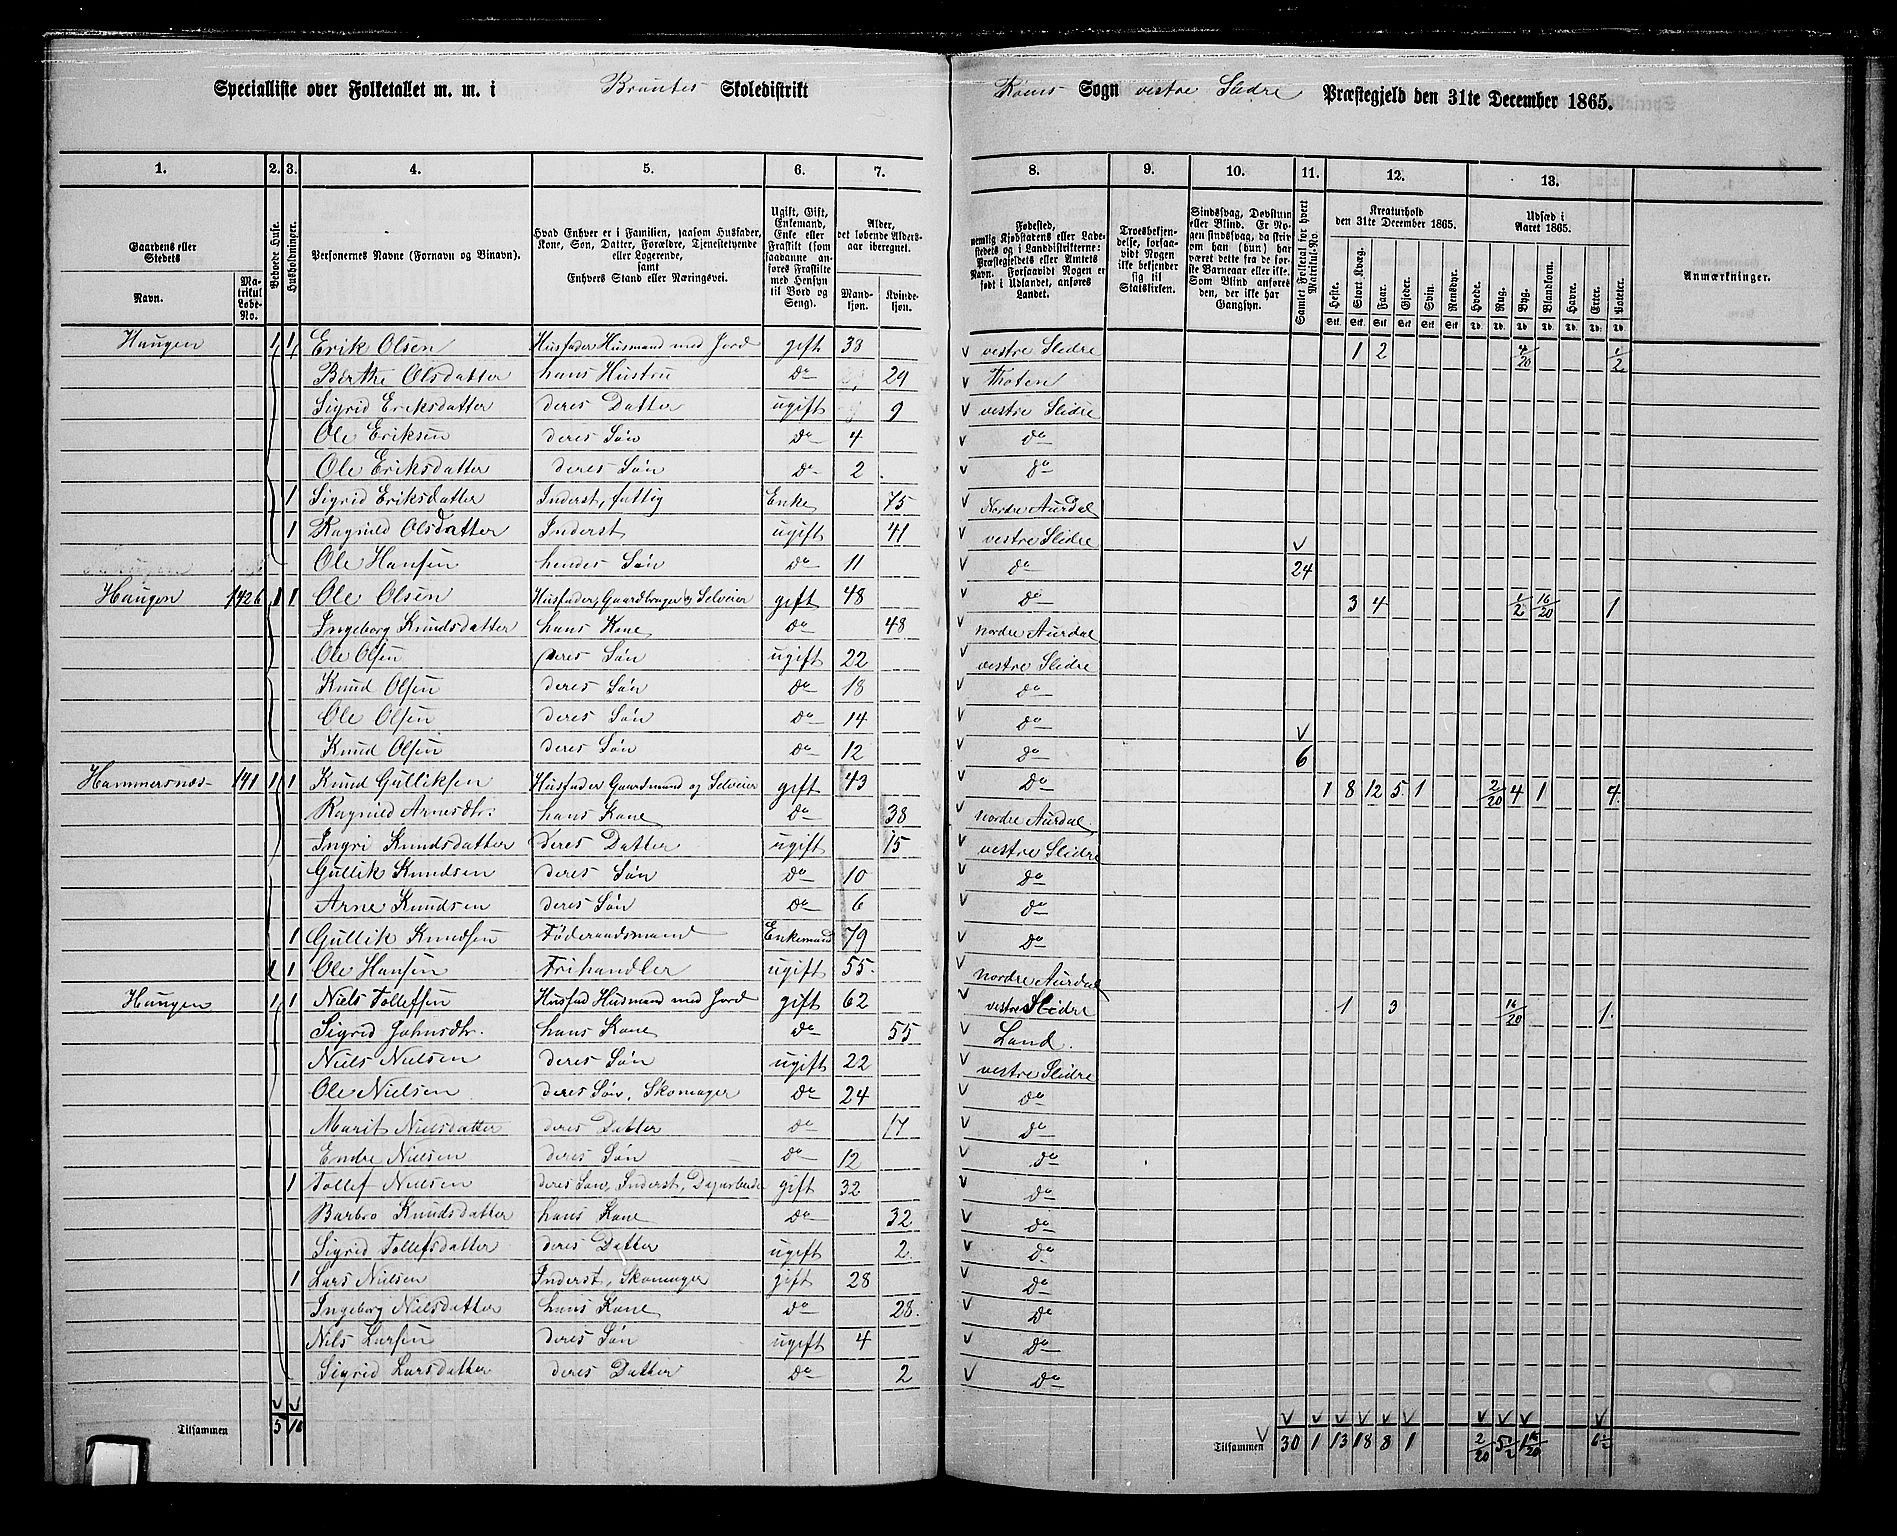 Specialliste over Folketallet m. m. i Brøntes Skoledistrikt
Røns Sogn vestre Slidre Præstegjeld den 31te December 1865.
1. 2. 3. 4. 5. 6. 7. 8. 9. 10. 11. 12. 13.
Gaardens eller Stedets
Navn.
Matrikul Løbe-No.
Beboede Huse.
Husholdninger.
Personernes Navne (Fornavn og Binavn).
Hvad Enhver er i Familien, saasom Husfader, Kone, Søn, Datter, Forældre, Tjenestetyende eller Logerende, samt Enhvers Stand eller Næringsvei.
Ugift, Gift, Enkemand, Enke eller Fraskilt (som saadanne anføres Fraskilte med Hensyn til Bord og Seng).
Alder, det løbende Aldersaar iberegnet.
Mandkjøn. Kvindekjøn.
Fødested, nemlig Kjøbstadens eller Ladestedets og i Landdistrikterne: Præstegjeldets eller Amtets Navn. Forsaavidt Nogen er født i Udlandet, anføres Landet.
Troesbekjendelse, forsaavidt Nogen ikke bekjender sig til Statskirken.
Sindssvag, Døvstum eller Blind. Er Nogen sindssvag, da skriv om han (hun) har været dette fra de første Barneaar eller ikke. Som Blind anføres den, der ikke har Gangsyn.
Samlet Folketal for hvert Matrikul-No.
Kreaturhold den 31te December 1865.
Heste. Stort Kvæg. Faar. Gjeder. Svin. Rensdyr.
Udsæd i Aaret 1865.
Hvede. Rug. Byg. Blandkorn. Havre. Erter. Poteter.
Anmærkninger.
Haugen 1 1 Erik Olsen Husfader Husmand med Jord gift 38 vestre Slidre 1 2 4/20 1/2
Berthe Olsdatter hans Hustru do 29 Thoten
Sigrid Eriksdatter deres Datter ugift 9 vestre Slidre
Ole Eriksen deres Søn do 4 do
Ole Eriksdatter deres Søn do 2 do
1 Sigrid Eriksdatter Inderst, fattig Enke 75 Nordre Aurdal
1 Ragnild Olsdatter Inderst ugift 41 vestre Slidre
Ole Hansen hendes Søn do 11 do 24
Haugen 142b 1 1 Ole Olsen Husfader, Gaardbruger og Selveier gift 48 do 3 4 1/2 16/20 1
Ingeborg Knudsdatter hans Kone do 48 nordre Aurdal
Ole Olsen deres Søn ugift 22 vestre Slidre
Knud Olsen deres Søn do 18 do
Ole Olsen deres Søn do 14 do
Knud Olsen deres Søn do 12 do 6
Hammersnæs 141 1 1 Knud Gulliksen Husfader Gaardmand og Selveier gift 43 do 1 8 12 5 1 2/20 4 1 4
Ragnild Arnesdtr. hans Kone do 38 nordre Aurdal
Ingri Knudsdatter deres Datter ugift 15 vestre Slidre
Gullik Knudsen deres Søn do 10 do
Arne Knudsen deres Søn do 6 do
1 Gullik Knudsen Føderaadsmand Enkemand 79 do
1 1 Ole Hansen Frihandler ugift 55 nordre Aurdal
Haugen 1 1 Niels Tollefsen Husfad Husmand med Jord gift 62 vestre Slidre 1 3 16/20 1
Sigrid Johnsdtr. hans Kone do 55 Land.
Niels Nielsen deres Søn ugift 22 vestre Slidre
Ole Nielsen deres Søn, Skomager do 24 do
Marit Nielsdatter deres Datter do 17 do
Endre Nielsen deres Søn do 12 do
1 Tollef Nielsen deres Søn, Inderst, gift 32 do
Barbro Knudsdatter hans Kone do 32 do
Sigrid Tollefsdatter deres Datter ugift 2 do
1 Lars Nielsen Inderst, Skomager gift 28 do
Ingeborg Nielsdatter hans Kone do 28 do
Nils Larsen deres Søn ugift 4 do
Sigrid Larsdatter deres Datter do 2 do
Tilsammen 5 10
Tilsammen 30 1 13 18 8 1 2/20 5 1/2 1 16/20 6 1/2